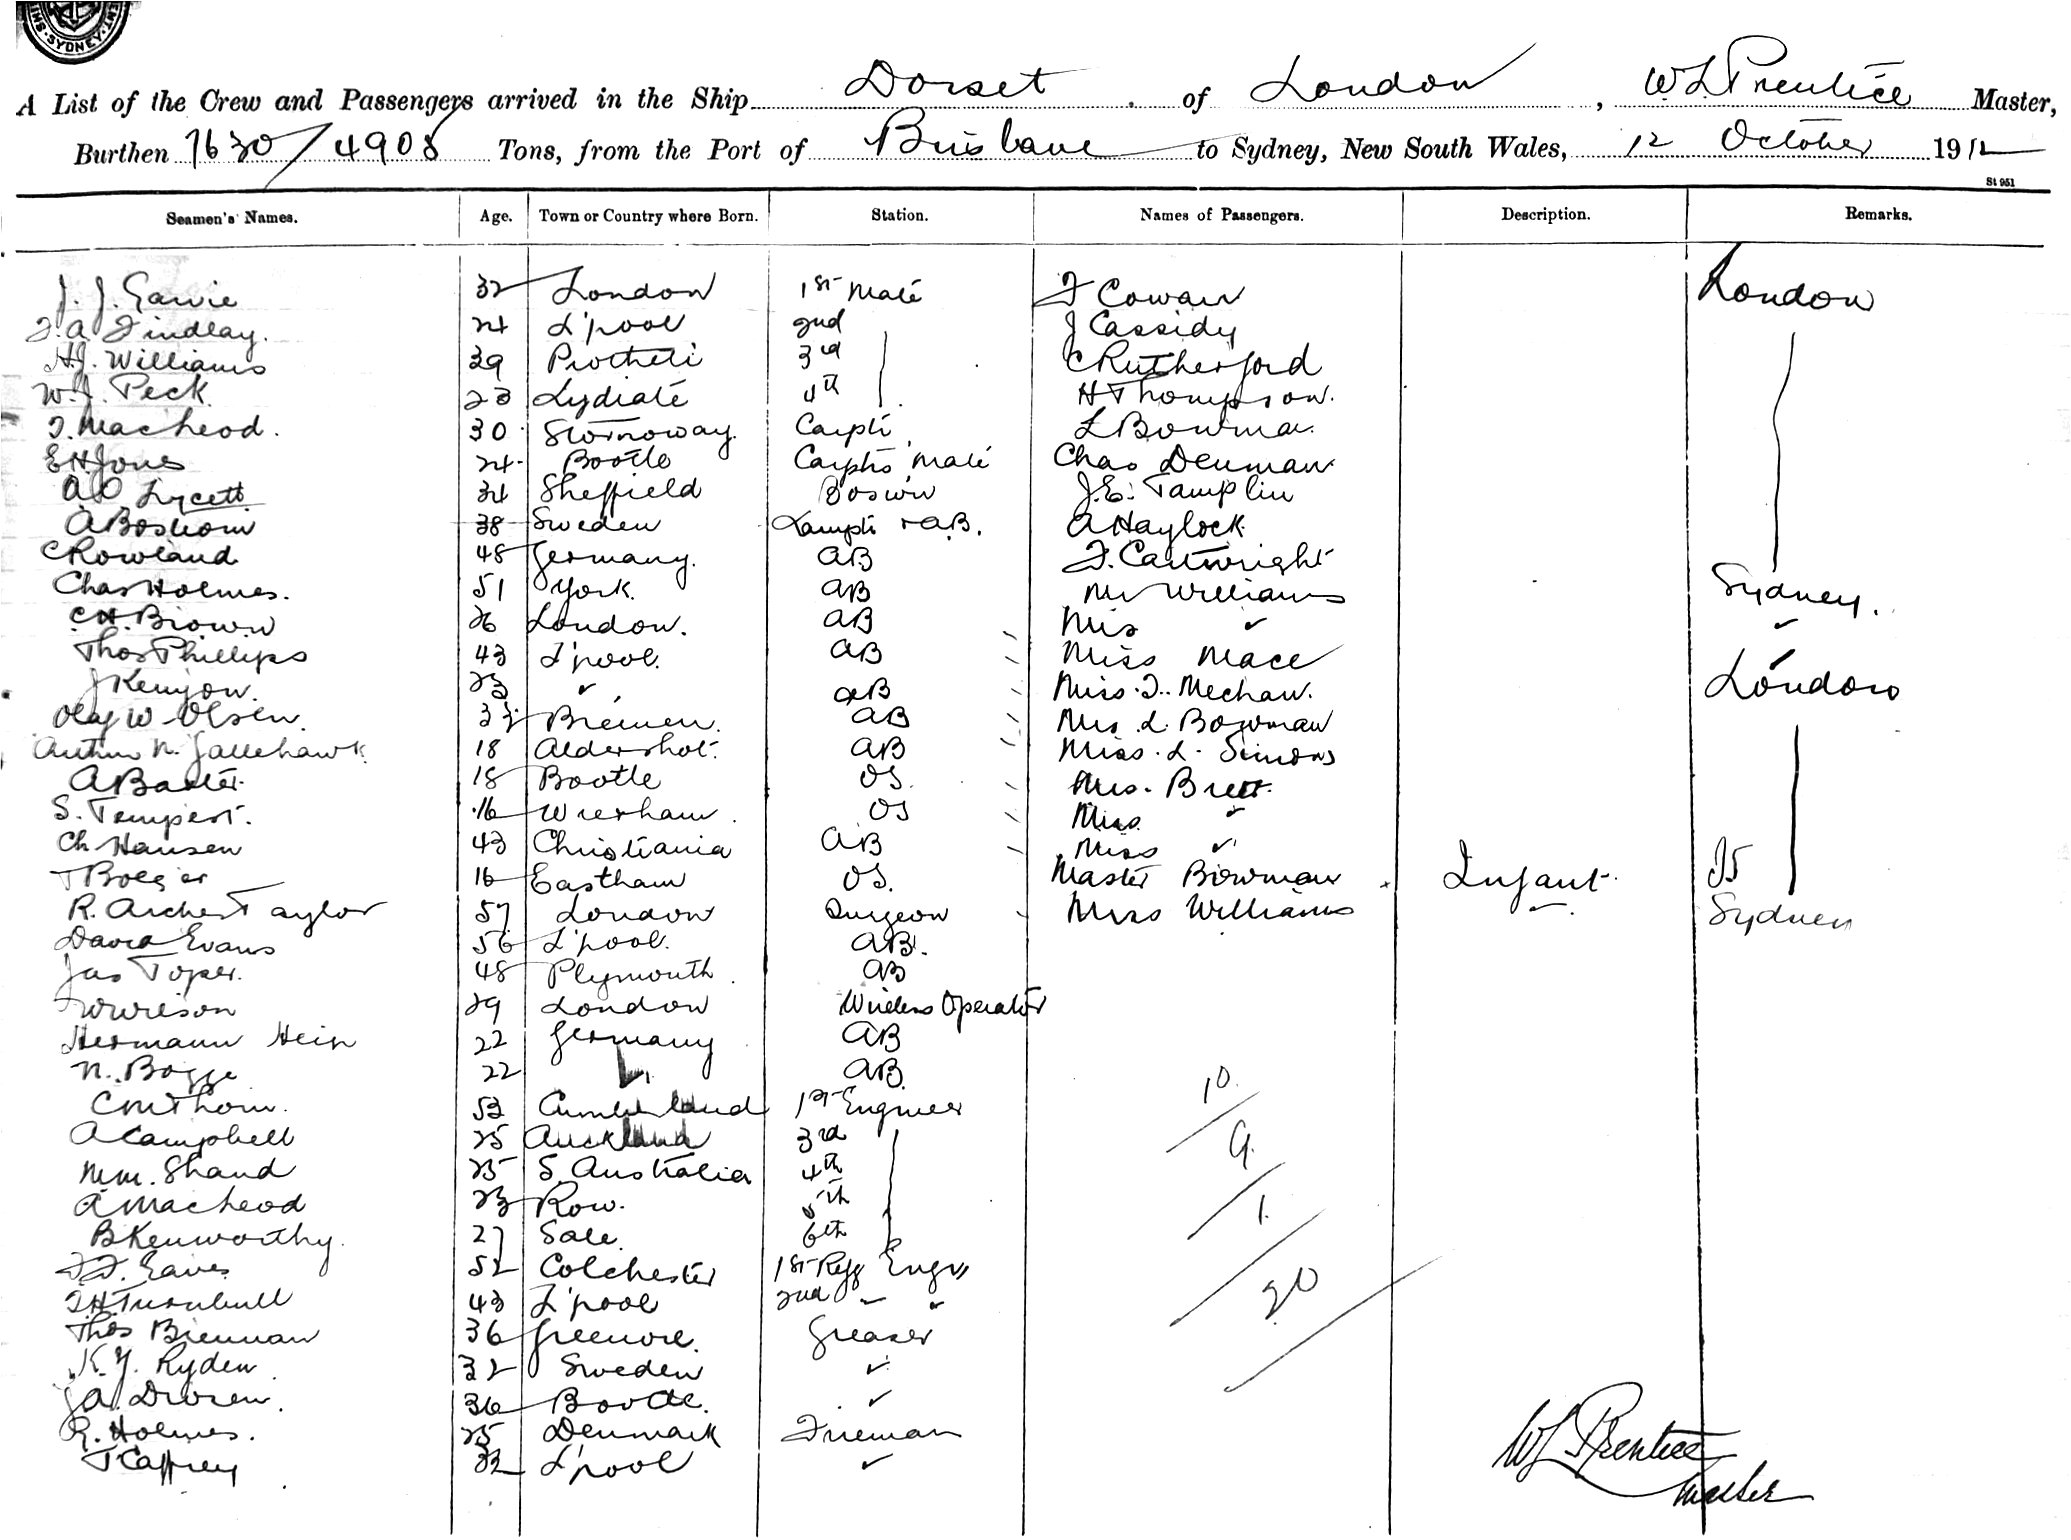 SYDNEY
A List of the Crew and Passengers arrived in the Ship Dorset of London, W L Prentice Master,
Burthen 7630/4908 Tons, from the Port of Brisbane to Sydney, New South Wales, 12 October 1912
St 951
Seamen's Names. Age. Town or Country where Born. Station. Names of Passengers. Description. Remarks.
J. J. Garvie 32 London 1st Mate F Cowan London
F. A. Findlay. 24 L'pool 2nd J Cassidy
H.J. Williams 39 3rd C Rutherford
W. J. Peck 23 Lydiate 4th H Thompson.
J. Macleod. 30 Stornoway. Carptr L Bowman
E H Jones 24 Bootle Carptrs Mate Chas Denman
A O Lycett 34 Sheffield Bos'wn J.E. Tamplin
A Bostrom 38 Sweden Lamptr + AB. A Haylock
C Rowland 48 Germany. AB F. Cartwright
Chas Holmes. 51 York. AB Mr Williams Sydney.
C H. Brown 26 London. AB Mrs ✓ ✓
Thos Phillips 43 L'pool. AB Miss Mace London
J Kenyon. 23 ✓ AB Miss. Mechan.
Olaf W Olsen. 33 Bremen. AB Mrs L. Bowman
Arthur N. 18 Aldershot. AB Miss. L. Simons
A Baxter. 18 Bootle OS. Mrs. Brett
S. Tempest. 16 Wrexham. OS Miss ✓
Ch Hansen 43 Christiania AB Miss ✓
T 16 Eastham OS. Master Bowman Infant.
R. Archer Taylor 57 London Surgeon Miss Williams Sydney
David Evans 56 L'pool. AB.
Jas Toper. 48 Plymouth. AB
W Wilson 29 London Wireless Operator
Hermann Hein 22 Germany AB
N. Bogge 22 ✓ AB.
C M Thom. 53 Cumberland 1st Engineer 10
A Campbell 25 Auckland 3rd 9.
M M. Shand 25 S. Australia 4th
A Macleod 23 Row. 5th 1
B Kenworthy. 27 Sale 6th
F. F. Eaves 52 Colchester 1st Refg Engr 20
T. H. Turnbull 43 L'pool 2nd
Thos Brennan 36 Greenore. Greaser
K. J. Ryden 32 Sweden ✓
J A. 36 Bootle. ✓
R. Holmes. 25 Denmark Fireman W L Prentice
T Caffrey 32 L'pool ✓ Master